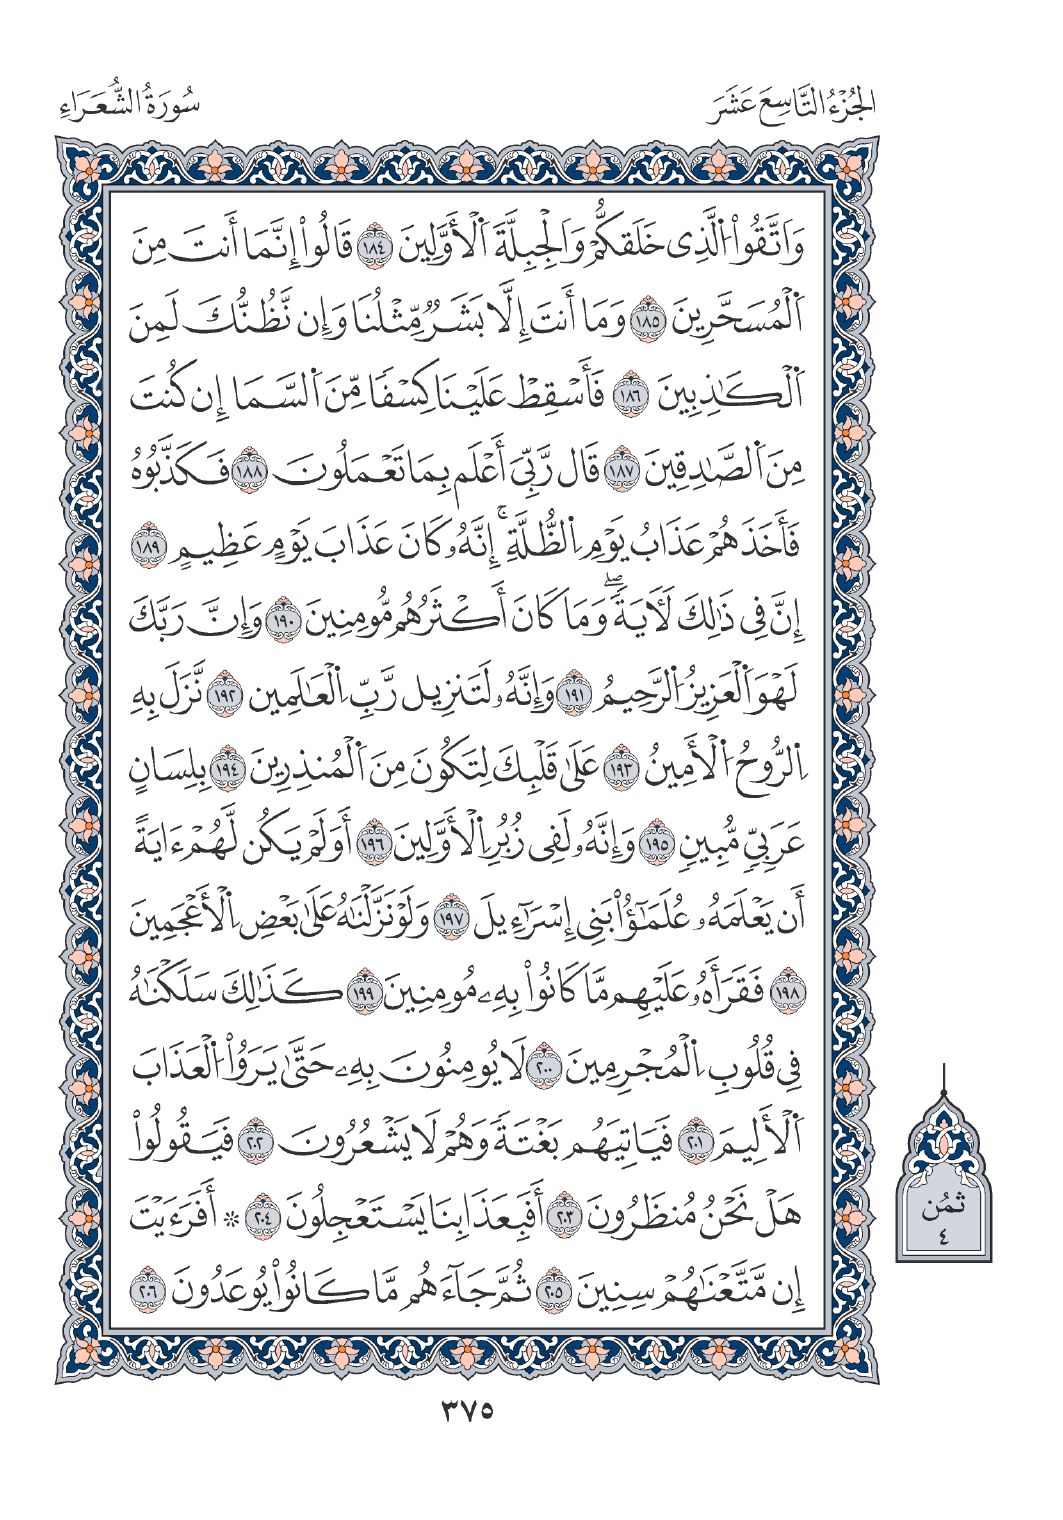 الجُزْءُ التَّاسِعَ عَشَرَ
سُورَةُ الشُّعَرَاءِ
وَاَتَّقُواْ اُلَّذِى خَلَقَكُّمْ وَالْجِبِلَّةَ اَلْأَوَّلِينَ ١٨٤ قَالُواْ إِنَّمَا أَنتَ مِنَ
اَلْمُسَحَّرِينَ ١٨٥ وَمَا أَنتَ إِلَّا بَشَرٌ مِّثْلُنَا وَإِن نَّظُنُّكَ لَمِنَ
اَلْكَٰذِبِينَ ١٨٦ فَأَسْقِطْ عَلَيْنَا كِسْفًا مِّنَ اَلسَّمَا إِن كُنتَ
مِنَ اَلصَّٰدِقِينَ ١٨٧ قَال رَّبِّىَ أَعْلَم بِمَا تَعْمَلُونَ ١٨٨ فَكَذَّبُوهُ
فَأَخَذَهُمْ عَذَابُ يَوْمِ اِلظُّلَّةِ ۚ إِنَّهُۥ كَانَ عَذَابَ يَوْمٍ عَظِيمٍ ١٨٩
إِنَّ فِى ذَٰلِكَ لَأٓيَةً ۖ وَمَا كَانَ أَكْثَرُهُم مُّومِنِينَ ١٩٠ وَإِنَّ رَبَّكَ
لَهْوَ اَلْعَزِيزُ اُلرَّحِيمُ ١٩١ وَإِنَّهُۥ لَتَنزِيل رَّبِّ اِلْعَٰلَمِين ١٩٢ نَّزَلَ بِهِ
اِلرُّوحُ اُلْأَمِينُ ١٩٣ عَلَىٰ قَلْبِكَ لِتَكُونَ مِنَ اَلْمُنذِرِينَ ١٩٤ بِلِسَانٍ
عَرَبِىٍّ مُّبِينٍ ١٩٥ وَإِنَّهُۥ لَفِى زُبُرِ اِلْأَوَّلِينَ ١٩٦ أَوَلَمْ يَكُن لَّهُمْ ءَايَةً
أَن يَعْلَمَهُۥ عُلَمَٰٓؤُاْ بَنِى إِسْرَآءِيلَ ١٩٧ وَلَوْ نَزَّلْنَٰهُ عَلَىٰ بَعْضِ اِلْأَعْجَمِينَ
١٩٨ فَقَرَأَهُۥ عَلَيْهِم مَّا كَانُواْ بِهِۦ مُومِنِينَ ١٩٩ كَذَٰلِكَ سَلَكْنَٰهُ
فِى قُلُوبِ اِلْمُجْرِمِينَ ٢٠٠ لَا يُومِنُونَ بِهِۦ حَتَّىٰ يَرَوُاْ اُلْعَذَابَ
اَلْأَلِيمَ ٢٠١ فَيَاتِيَهُم بَغْتَةً وَهُمْ لَا يَشْعُرُونَ ٢٠٢ فَيَقُولُواْ
هَلْ نَحْنُ مُنظَرُونَ ٢٠٣ أَفَبِعَذَابِنَا يَسْتَعْجِلُونَ ٢٠٤ * أَفَرَءَيْتَ
إِن مَّتَّعْنَٰهُمْ سِنِينَ ٢٠٥ ثُمَّ جَآءَهُم مَّا كَانُواْ يُوعَدُونَ ٢٠٦
ثمُن
٤
٣٧٥